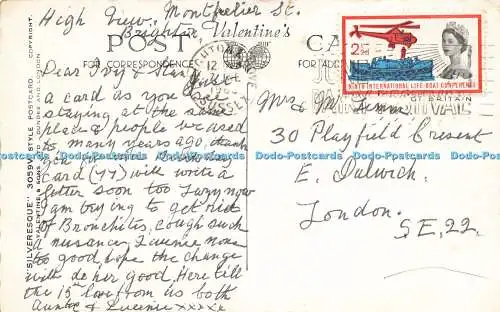 High View, Montpelier St.
Brighton
POST CARD
Valentine's
FOR CORRESPONDENCE
FOR ADD
Dear Ivy &
a card as you
staying at the same
place & people we used
to many years ago, thank
you for
card (77) will write a
letter soon too lazy now
I am trying to get rid
of Bronchitis, cough such
a nusance, Queenie none
to good, hope the change
will do her good. Here till
the 15th love from us both
Auntie & Queenie xxxxx
Mrs & Mr
30 Playfield Cresent
E. Dulwich.
London.
S.E. 22.
2½D
NINTH INTERNATIONAL LIFE-BOAT CONFERENCE
BRIGHTON
SUSSEX
12
"SILVERESQUE" 3059W STYLE POSTCARD
VALENTINE & SONS LTD DUNDEE AND LONDON
COPYRIGHT.
Dodo-Postcards Dodo-Postcards Dodo-Postcards Dodo-Postcards Dodo-Postcards Dodo-Postcards